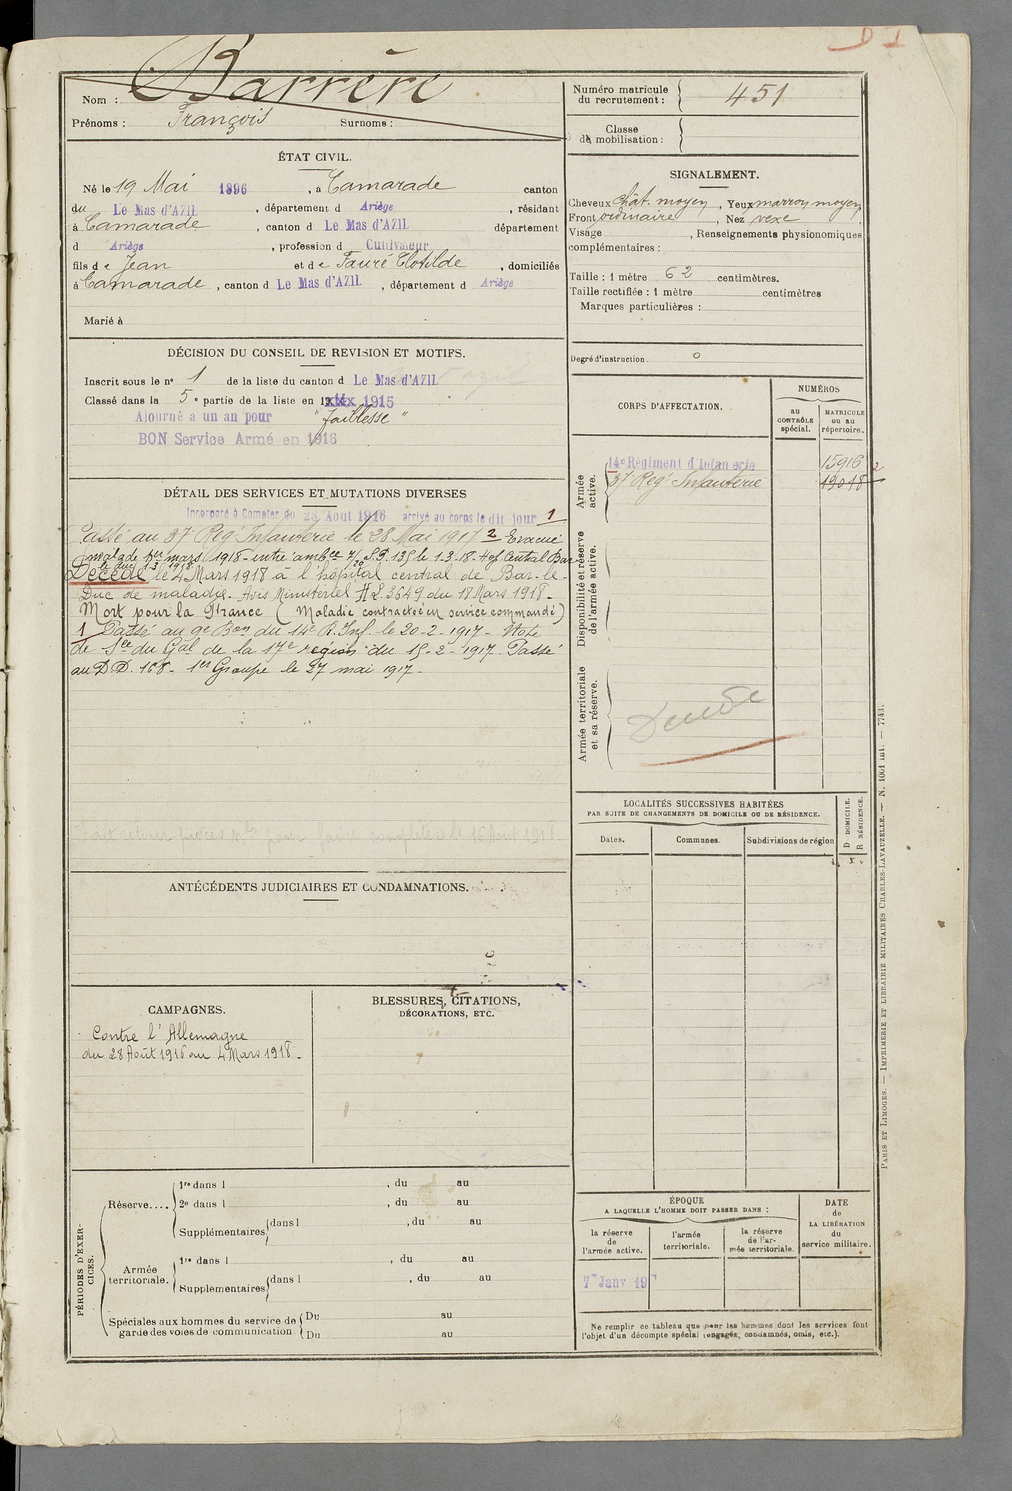 D 1
Nom : Barrère
Prénoms : François Surnoms :
Numéro matricule du recrutement : 451
Classe de mobilisation :
ÉTAT CIVIL.
Né le 19 Mai 1896 , à Camarade canton
du Le Mas d'AZIL , département d Ariège , résidant
à Camarade , canton d Le Mas d'AZIL département
d Ariège , profession d Cultivateur
fils de Jean et de Fauré Clotilde , domiciliés
à Camarade , canton d Le Mas d'AZIL , département d Ariège
Marié à
SIGNALEMENT.
Cheveux chât. moyen , Yeux marron moyen
Front ordinaire , Nez vexe
Visage , Renseignements physionomiques
complémentaires :
Taille : 1 mètre 62 centimètres.
Taille rectifiée : 1 mètre centimètres
Marques particulières :
Degré d'instruction. 0
DÉCISION DU CONSEIL DE REVISION ET MOTIFS.
Inscrit sous le n° 1 de la liste du canton d Le Mas d'AZIL
Classé dans la 5e partie de la liste en 1915
Ajourné a un an pour "faiblesse"
BON Service Armé en 1916
DÉTAIL DES SERVICES ET MUTATIONS DIVERSES
Incorporé à Compter du 28 Aout 1916 arrivé au corps le dit jour 1
Passé au 37 Reg' Infanterie le 28 Mai 1917 2 Evacué
malade mars 1918 entre amb 135 le 1.3.18 Central Bar
le Duc 1-3-1918
Décédé le 4 Mars 1918 à l'hôpital central de Bar-le-
Duc de maladie. Avis Ministériel 3649 du 18 Mars 1918-
Mort pour la France ( Maladie contractée en service commandé)
1 Passé au 9e Bon du 14e R. Inf. le 20-2-1917- Note
de Sce du Gal de la 17e région du 15-2-1917. Passé
au D.D. 168- 1er Groupe le 27 mai 1917.
CORPS D'AFFECTATION.
NUMÉROS
au CONTRÔLE spécial.
MATRICULE ou au répertoire.
Armée active.
14e Régiment d'Infanterie 15916
37 Reg' Infanterie 19018 2
Disponibilité et réserve de l'armée active.
Armée territoriale et sa réserve.
Décédé
LOCALITÉS SUCCESSIVES HABITÉES
PAR SUITE DE CHANGEMENTS DE DOMICILE OU DE RÉSIDENCE.
Dates.
Communes.
Subdivisions de région
D DOMICILE.
R RÉSIDENCE.
ANTÉCÉDENTS JUDICIAIRES ET CONDAMNATIONS.
CAMPAGNES.
Contre l'Allemagne
du 28 Août 1916 au 4 Mars 1918.
BLESSURES, CITATIONS,
DÉCORATIONS, ETC.
PÉRIODES D'EXERCICES.
Réserve....
1re dans l , du au
2e dans l , du au
Supplémentaires dans l , du au
Armée territoriale.
1re dans l , du au
Supplementaires dans l , du au
Spéciales aux hommes du service de
garde des voies de communication
Du au
Du au
ÉPOQUE
A LAQUELLE L'HOMME DOIT PASSER DANS :
la réserve de l'armée active.
l'armée territoriale.
la réserve de l'armée territoriale.
DATE de LA LIBÉRATION du service militaire.
7 Janv 19
Ne remplir ce tableau que pour les hommes dont les services font
l'objet d'un décompte spécial (engagés, condamnés, omis, etc.).
PARIS ET LIMOGES. — IMPRIMERIE ET LIBRAIRIE MILITAIRES CHARLES-LAVAUZELLE. — N. 1001 int. — 7743.